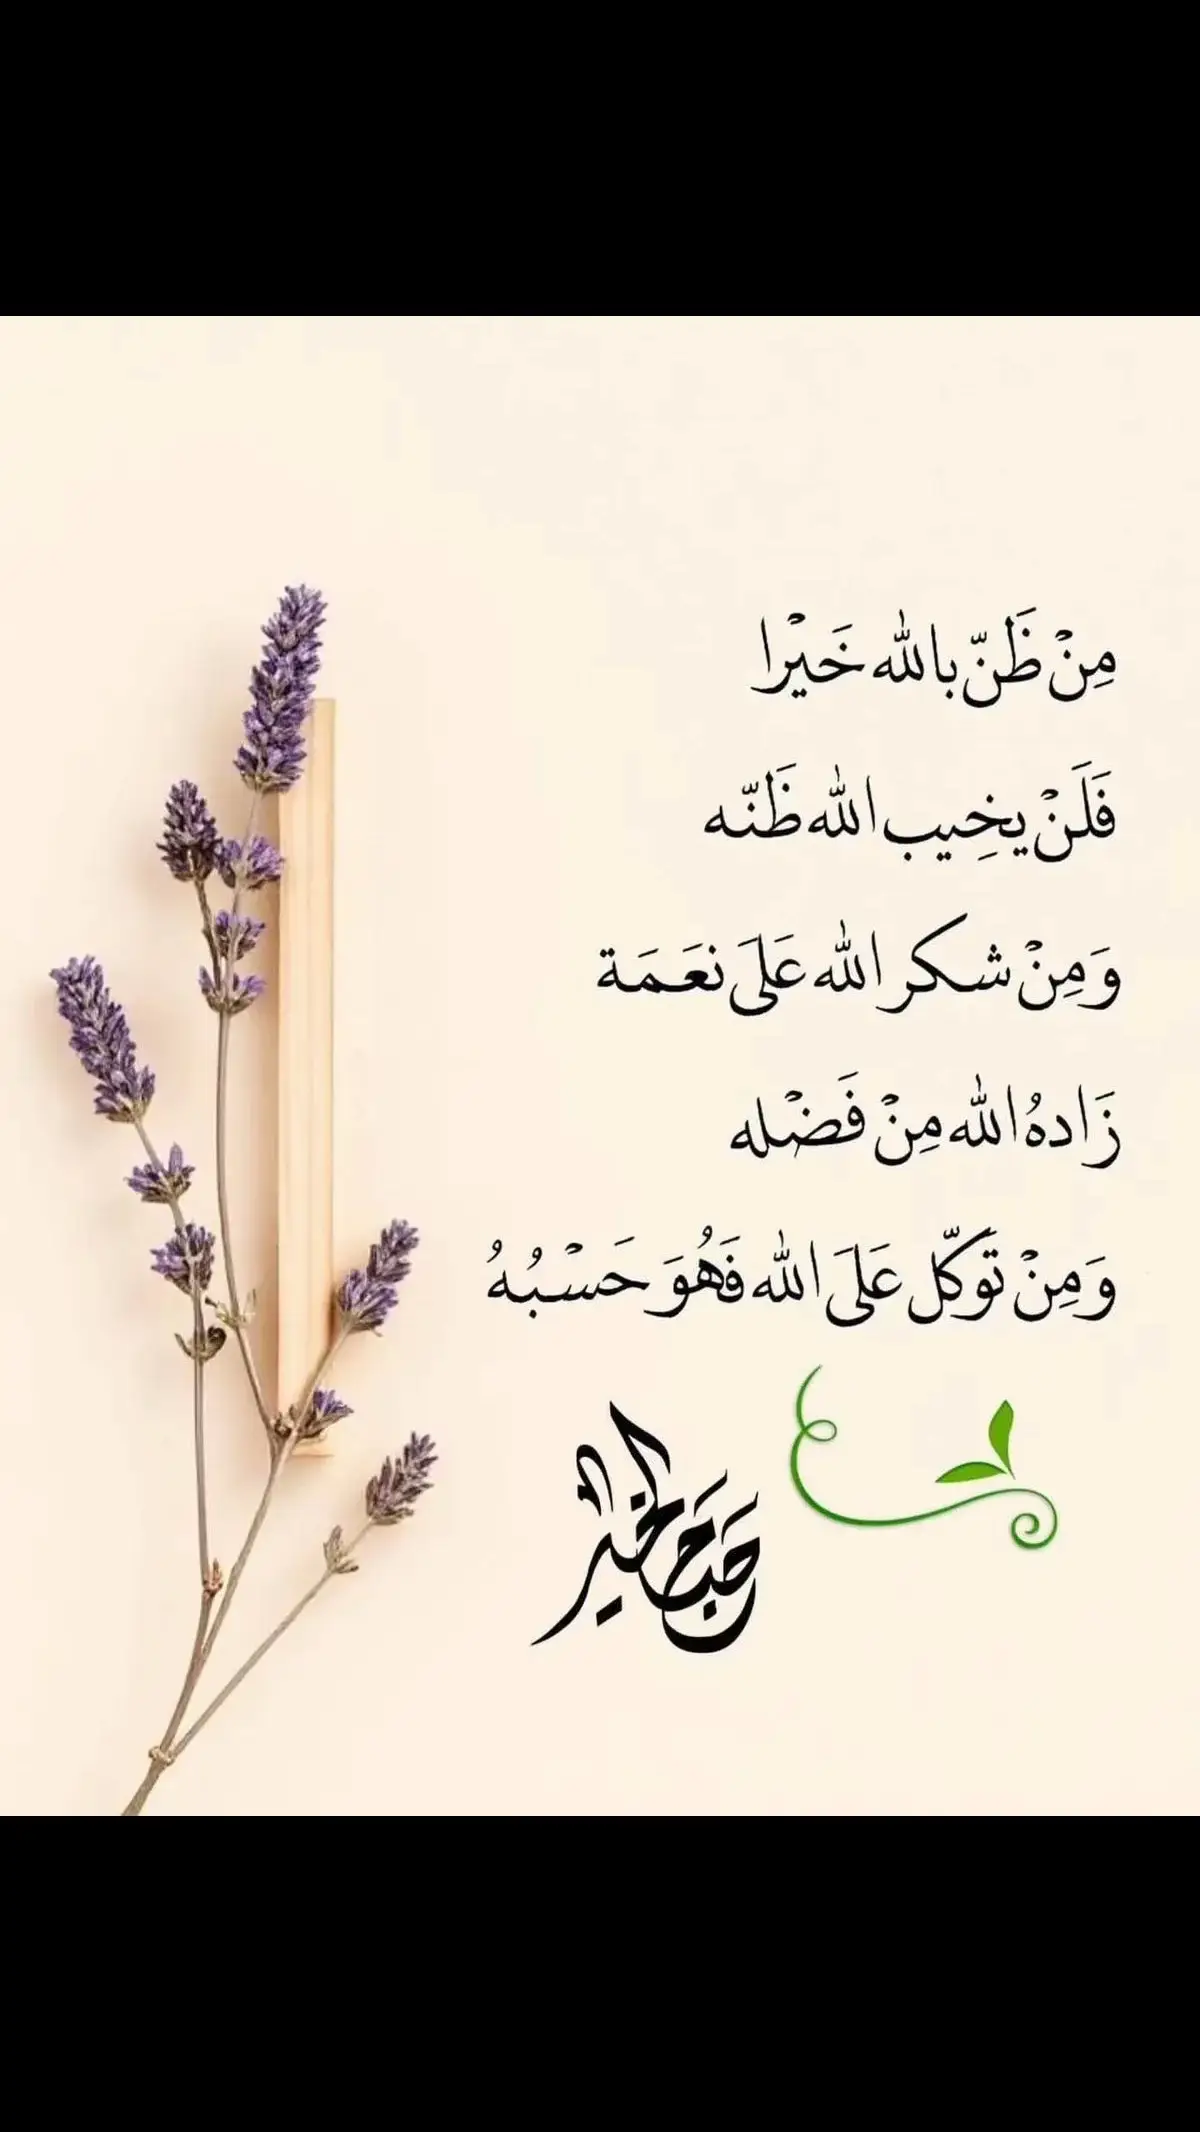 مِنْ ظَنّ بالله خَيْرا
فَلَنْ يخِيب الله ظَنّه
وَمِنْ شكر الله عَلَى نعَمَة
زَادهُ الله مِنْ فَضْله
وَمِنْ تَوكّل عَلَى الله فَهُوَ حَسْبُهُ
صباح الخير